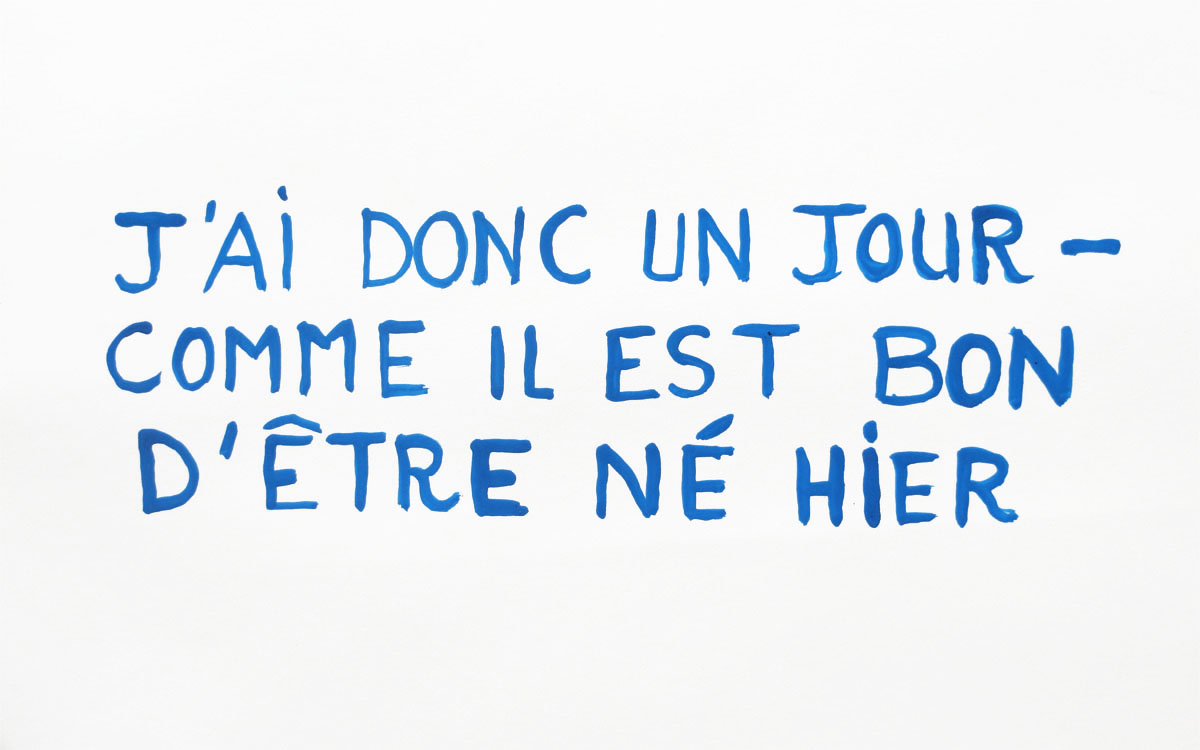 J'Ai DONC UN JOUR –
COMME IL EST BON
D'ÊTRE NÉ HiER